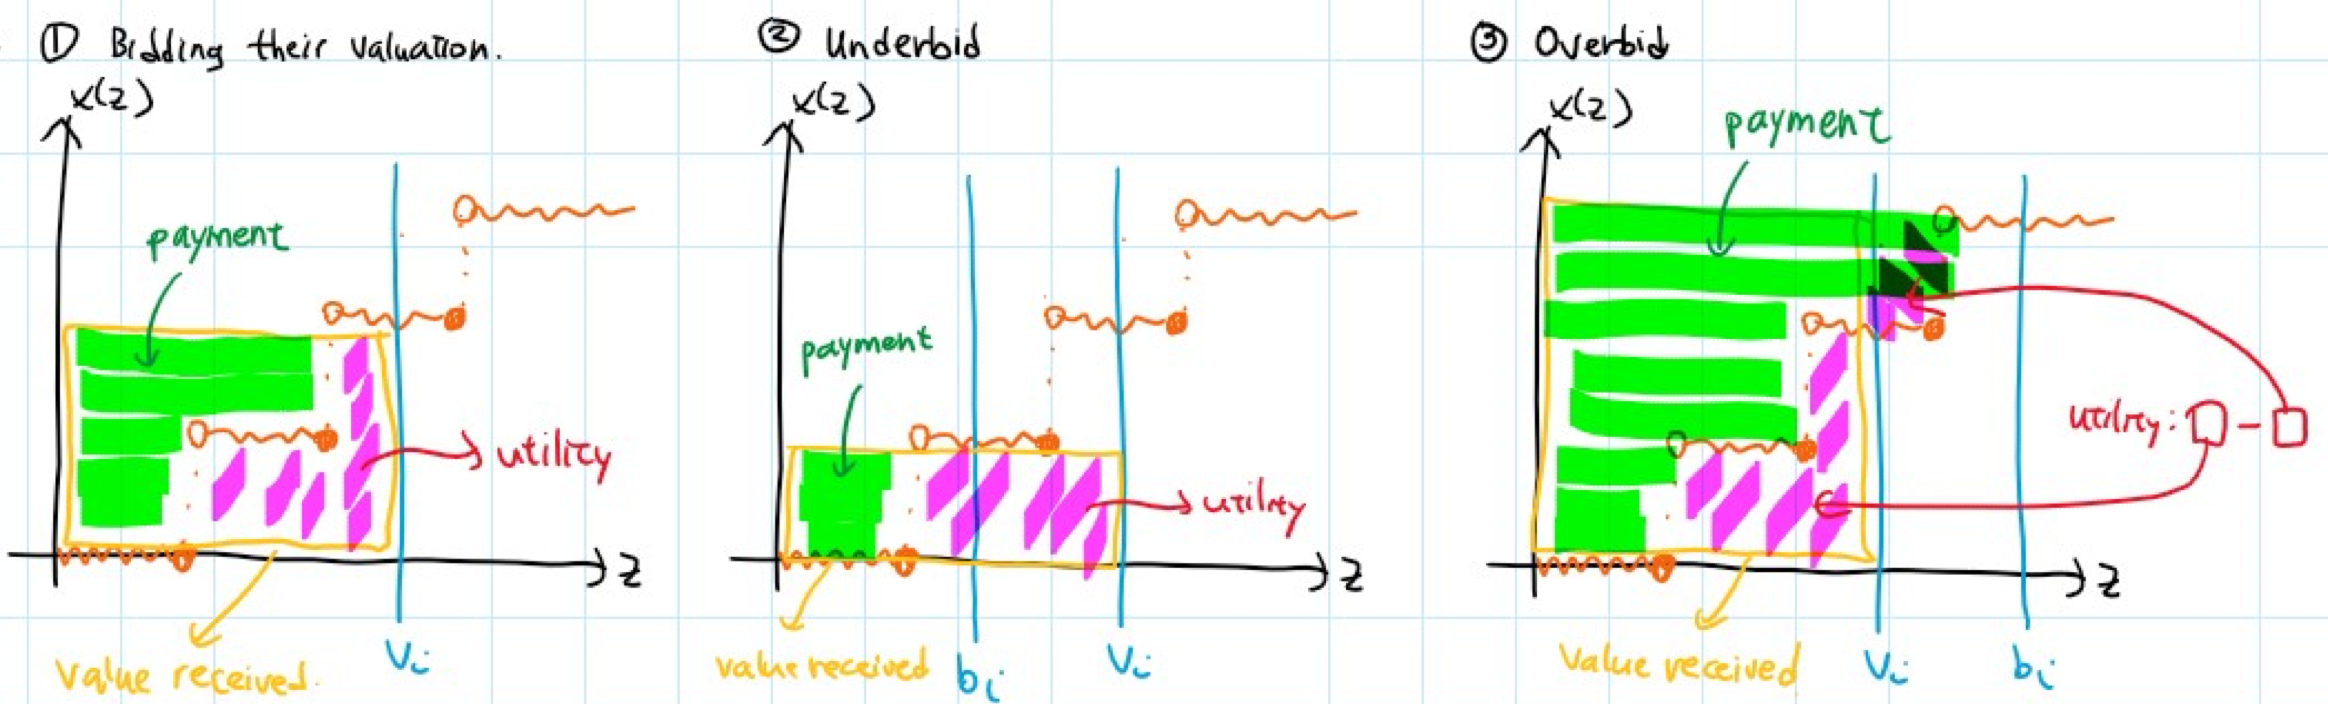 ① Bidding their valuation.
x(z)
payment
utility
z
Value received.
Vi
② Underbid
x(z)
payment
utility
z
value received
bi
Vi
③ Overbid
x(z)
payment
utility: □ - □
z
Value received
Vi
bi